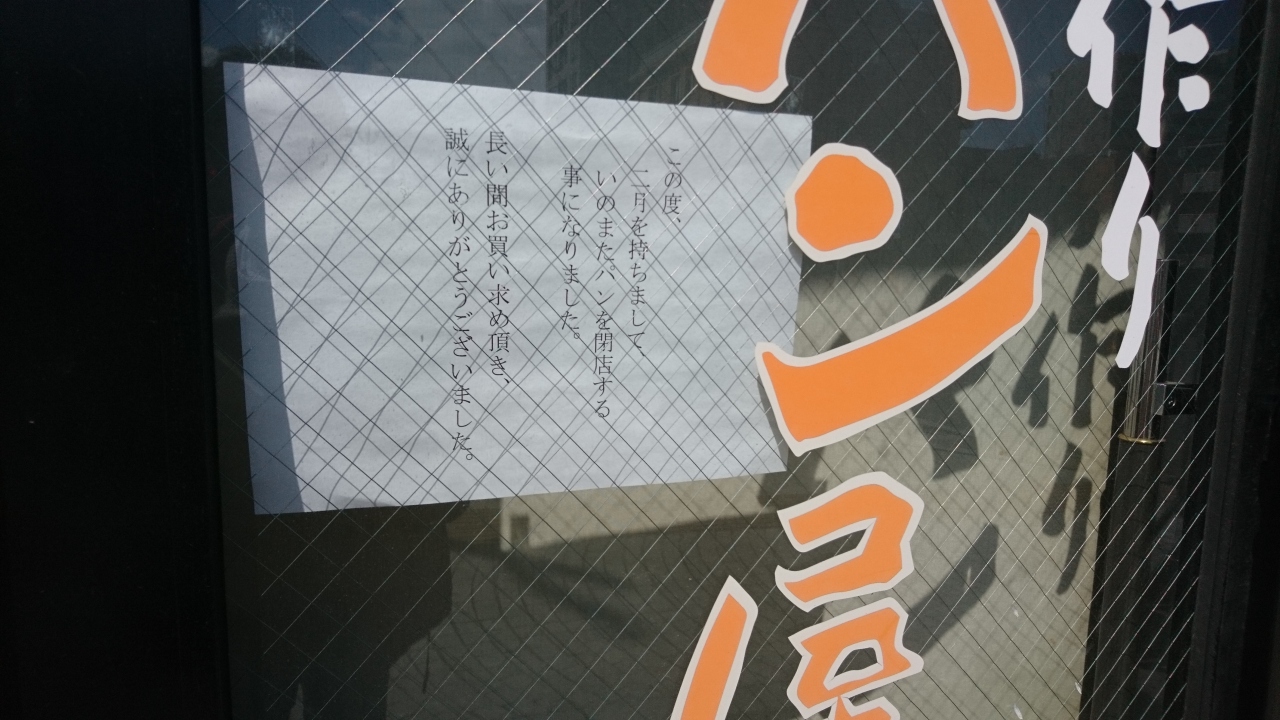 作り
パン屋
この度、
二月を持ちまして、
いのまたパンを閉店する
事になりました。
長い間お買い求め頂き、
誠にありがとうございました。